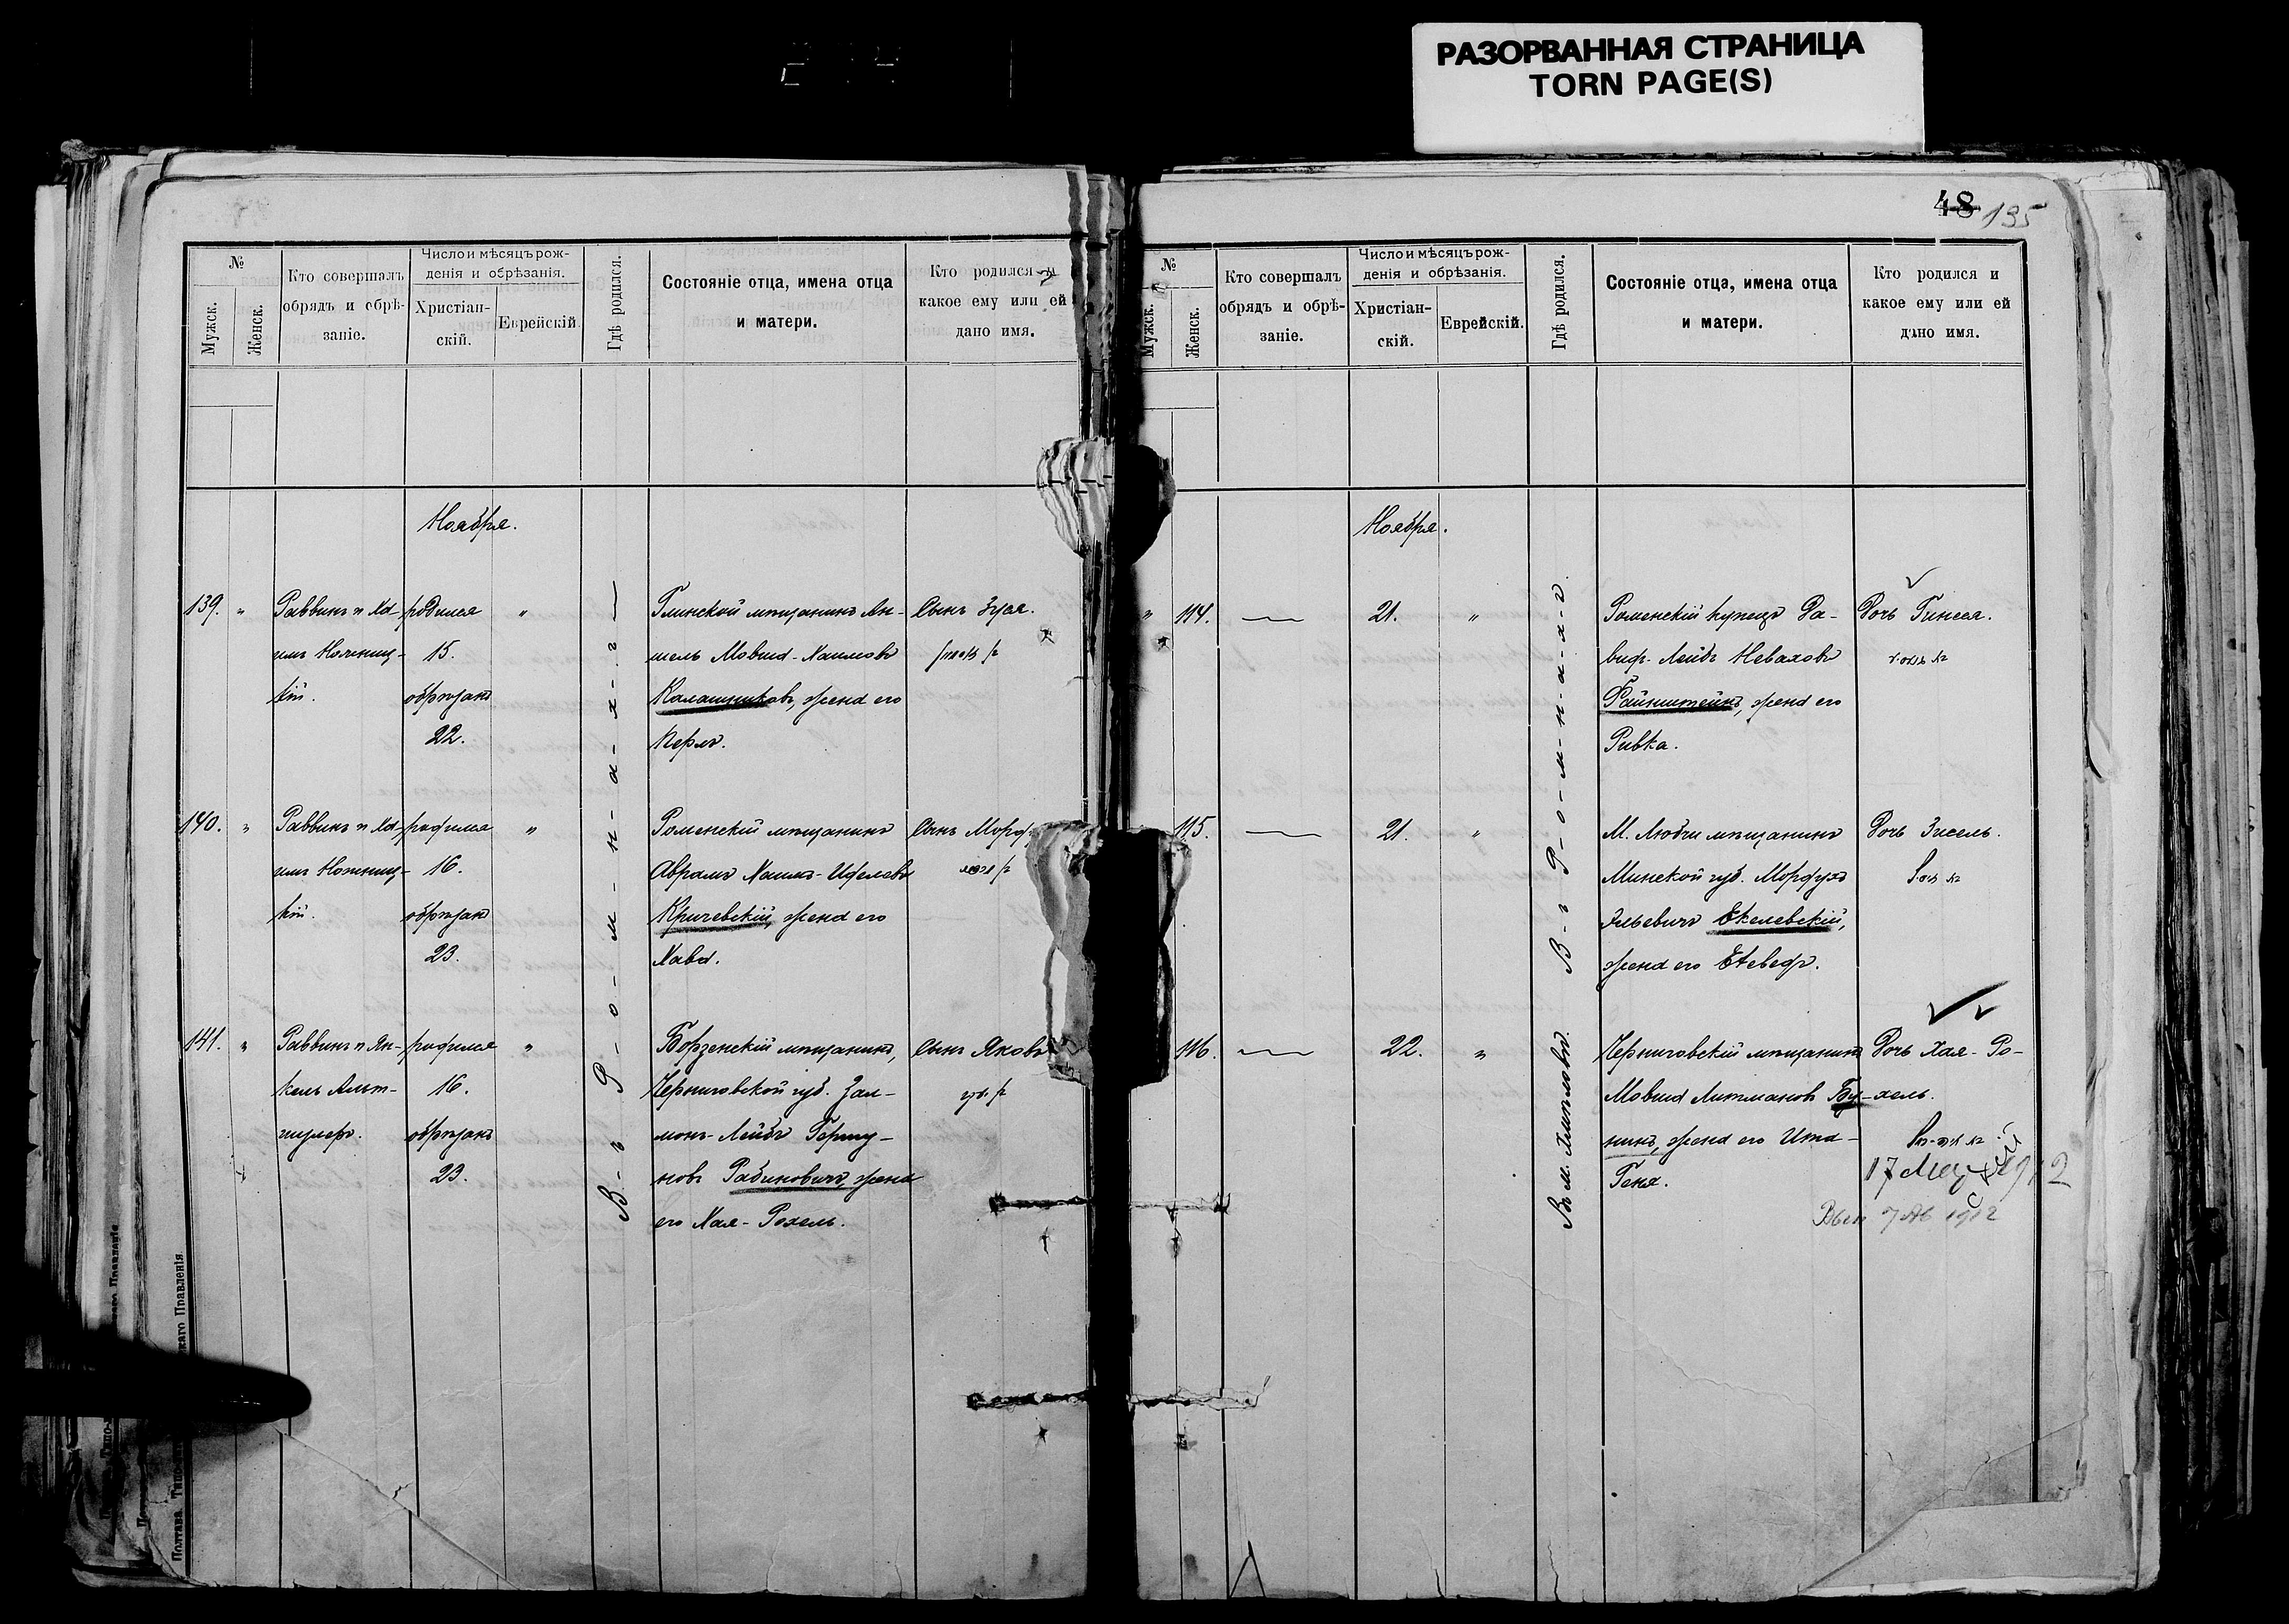 РАЗОРВАННАЯ СТРАНИЦА
TORN PAGE(S)
№
Мужск.
Женск.
Кто совершалъ
обрядъ и обрѣ-
заніе.
Число и мѣсяцъ рож-
денія и обрѣзанія.
Христіан-
скій.
Еврейскій.
Гдѣ родился.
Состояніе отца, имена отца
и матери.
Кто родился и
какое ему или ей
дано имя.
Ноября.
139.
"
Раввинъ и Ха-
имъ Ножниц-
кій.
родился
15.
обрѣзанъ
22.
"
Глинской мѣщанинъ Ан-
шель Мовша-Хаимовъ
Калашниковъ, жена его
Перля.
Сынъ Зуся.
140.
"
Раввинъ и Ха-
имъ Ножниц-
кій.
родился
16.
обрѣзанъ
23.
"
Роменскій мѣщанинъ
Абрамъ Хаимъ-Иделевъ
Кричевскій, жена его
Хава.
Сынъ Морд
141.
"
Раввинъ и Ян-
кель Альт-
шулеръ.
родился
16.
обрѣзанъ
23.
"
Борзенскій мѣщанинъ,
Черниговской губ. Зал-
монъ-Лейбъ Гершу-
новъ Рабиновичъ, жена
его Хая-Рохель.
Сынъ Яковъ
В-ъ Р-о-м-н-а-х-ъ
Полтава. Типо-
каго Правленія
48 195
№
Мужск.
Женск.
Кто совершалъ
обрядъ и обрѣ-
заніе.
Число и мѣсяцъ рож-
денія и обрѣзанія.
Христіан-
скій.
Еврейскій.
Гдѣ родился.
Состояніе отца, имена отца
и матери.
Кто родился и
какое ему или ей
дано имя.
Ноября.
"
114.
21.
"
Роменскій купецъ Да-
видъ-Лейбъ Неваховъ
Файнштейнъ, жена его
Ривка.
Дочь Гинеся.
115.
21.
"
М. Любчи мѣщанинъ
Минской губ. Мордухъ
Эльевичъ Екелевскій,
жена его
Дочь Зисель.
В-ъ Р-о-м-н-а-х-ъ.
116.
22.
"
Въ м.
Черниговскій мѣщанинъ
Мовша Литмановъ Бу-
нинъ, жена его Ита-
Геня.
Дочь Хая-Ро-
хель.
17 1912
1912